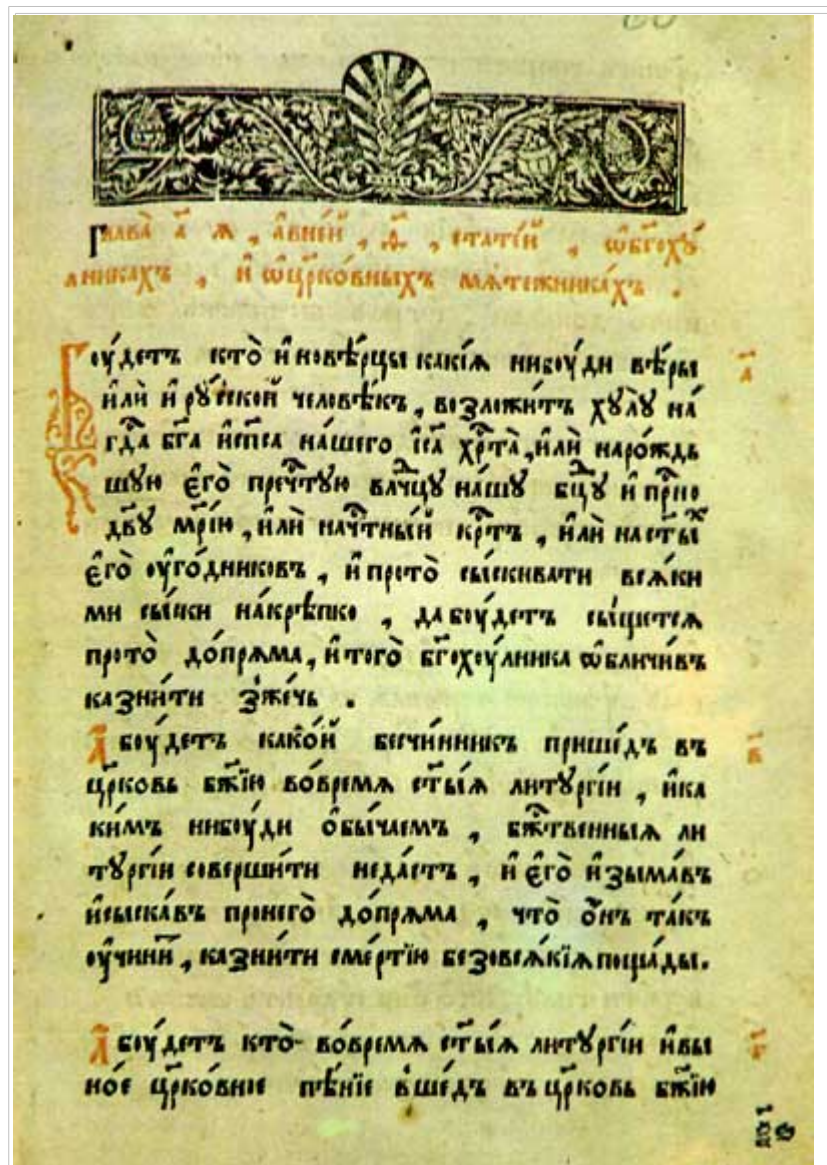 Глава̀ а҃ ѧ , а҆внє́й , ѳ҃ , статі́й , ѡ҆бг҃охꙋ́
лникахъ , и҆ ѡ҆цр҃ко́вныхъ мѧте́жника́хъ .
Боу́детъ кто̀ и҆новѣ́рцы какі́ѧ нибоу́ди вѣ́ры
и҆лѝ и҆ рꙋ́сской человѣ́къ , возложи́тъ хꙋлꙋ̀ на́
гдⷭ҇а бг҃а и҆сп҃са на́шего і҆с҃а хрⷭ҇та̀ , и҆лѝ наро́ждь
шꙋю є҆го̀ пречⷭ҇тꙋю влⷣчцꙋ на́шꙋ бц҃ꙋ и҆ прⷭ҇но
дв҃ꙋ мр҃і́ю , и҆лѝ начⷭ҇тны́й крⷭ҇тъ , и҆лѝ наст҃ы́хъ
є҆го̀ оу҆го́дниковъ , и҆ прото̀ сы́скивати всѧ́ки
ми сы́ски на́крѣпко , да боу́детъ сы́щетсѧ
прото̀ до́прѧма , и҆ того̀ бг҃охоу́лника ѡ҆бличи́въ
казни́ти зже́чь .
а҃
А҆ боу́детъ како́й бесчи́нникъ прише́дъ въ
цр҃ковь бж҃їю во́времѧ ст҃ы́ѧ литꙋргі́и , и҆ка
ки́мъ нибоу́ди ѻ҆бы́чаемъ , бжⷭ҇твенныѧ ли
тꙋргі́и соверши́ти неда́стъ , и҆ є҆го̀ и҆зыма́въ
и҆сыска́въ пронего̀ до́прѧма , что̀ ѻ҆́нъ та́къ
оу҆чини́т , казни́ти сме́ртїю безовсѧ́кїѧ поща́ды .
в҃
А҆ боу́детъ кто̀ во́времѧ ст҃ы́ѧ литꙋргі́и и҆вы
но́е цр҃ко́вное пѣ́нїе вше́дъ въ цр҃ковь бж҃їю
г҃